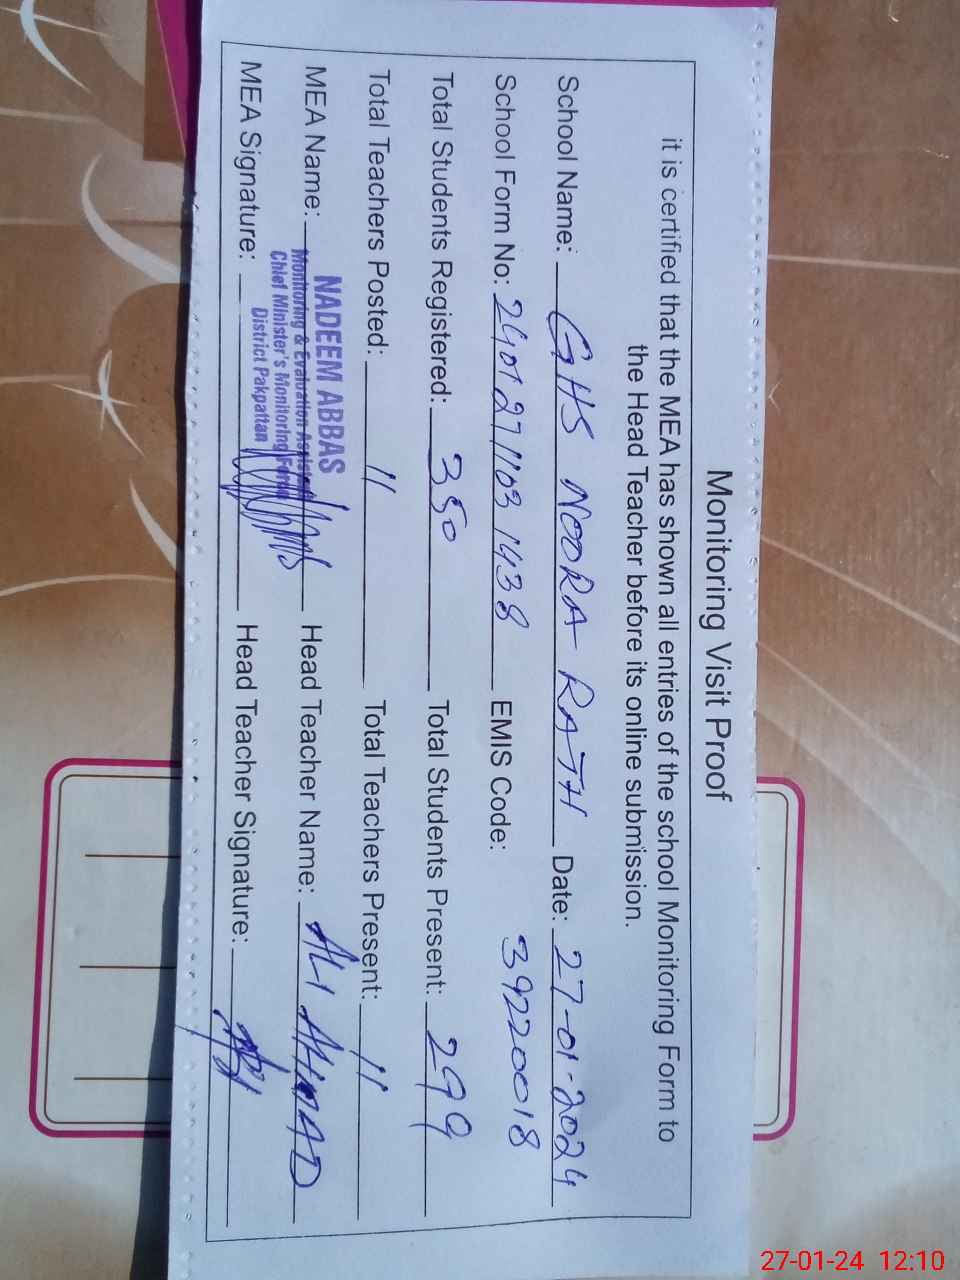 Monitoring Visit Proof
it is certified that the MEA has shown all entries of the school Monitoring Form to
the Head Teacher before its online submission.
School Name: GHS NOORA RATH Date: 27-01-2024
School Form No: 2401271103 1438 EMIS Code: 39220018
Total Students Registered: 350 Total Students Present: 299
Total Teachers Posted: 11 Total Teachers Present: 11
MEA Name: NADEEM ABBAS Head Teacher Name: ALI AHMAD
Monitoring & Evaluation Assistant
Chief Minister's Monitoring Force
District Pakpattan
MEA Signature: Head Teacher Signature:
27-01-24 12:10